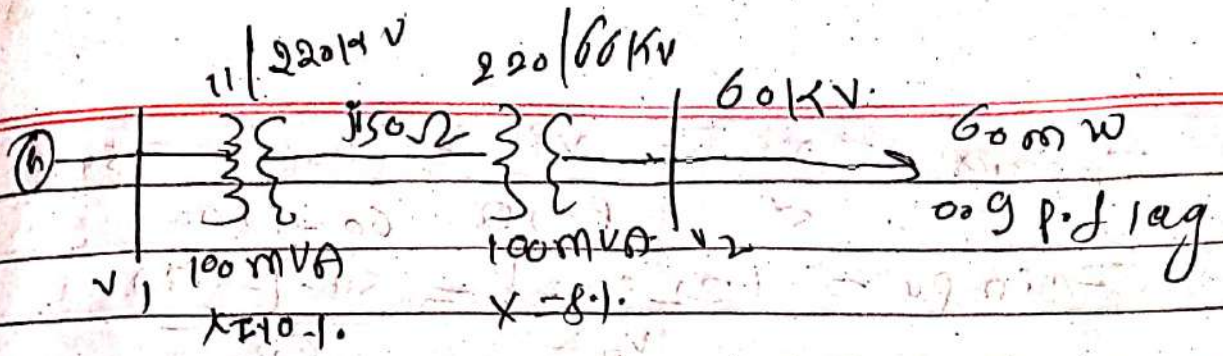 11/220KV 220/66KV 60KV.
G j150Ω 60 mw
0.9 p.f lag
V1 100 MVA 100 MVA V2
X=10%. X=8%.